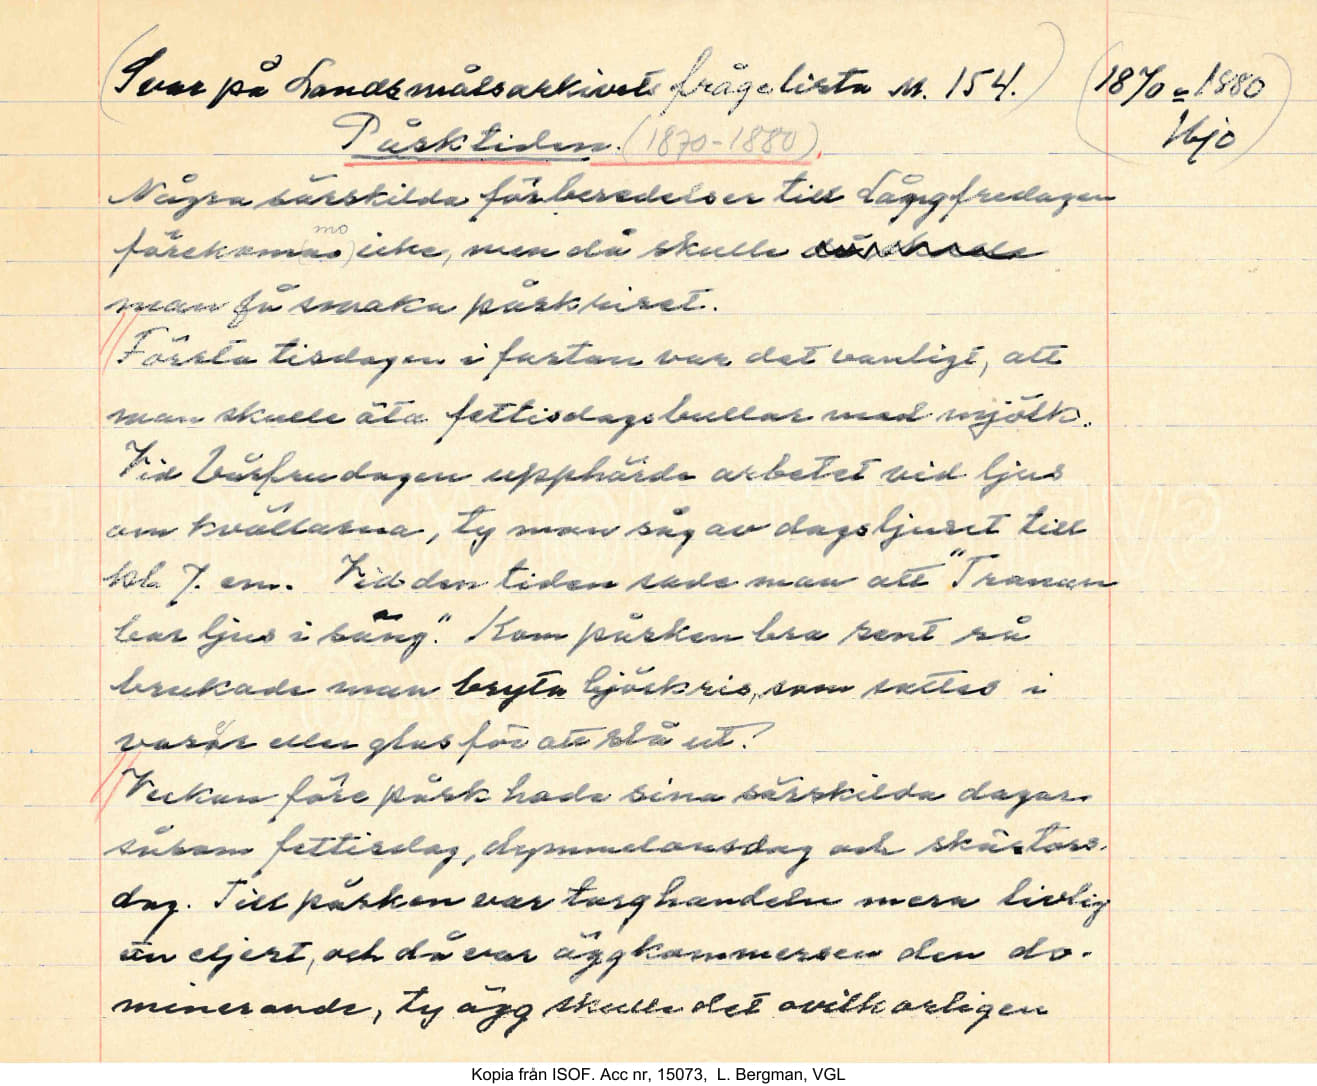 (Svar på Landsmålsarkivets frågelista M. 154.)
(1870-1880)
Hjo
Påsktiden. (1870-1880).
Några särskilda förberedelser till Långfredagen
mo
förekomas icke, men då skulle
man få smaka påskriset.
Första tisdagen i fastan var det vanligt, att
man skulle äta fettisdagsbullar med mjölk.
Vid Vårfrudagen upphörde arbetet vid ljus
om kvällarna, ty man såg av dagsljuset till
kl. 7. em. Vid den tiden sade man att "Tranan
bar ljus i säng." Kom påsken bra sent så
brukade man bryta björkris, som sattes i
vasor eller glas för att slå ut.
Veckan före påsk hade sina särskilda dagar
såsom fettisdag, dymmelonsdag och skärtors-
dag. Till påsken var torghandeln mera livlig
än eljest, och då var äggkommersen den do-
minerande, ty ägg skulle det ovilkorligen
Kopia från ISOF. Acc nr, 15073, L. Bergman, VGL